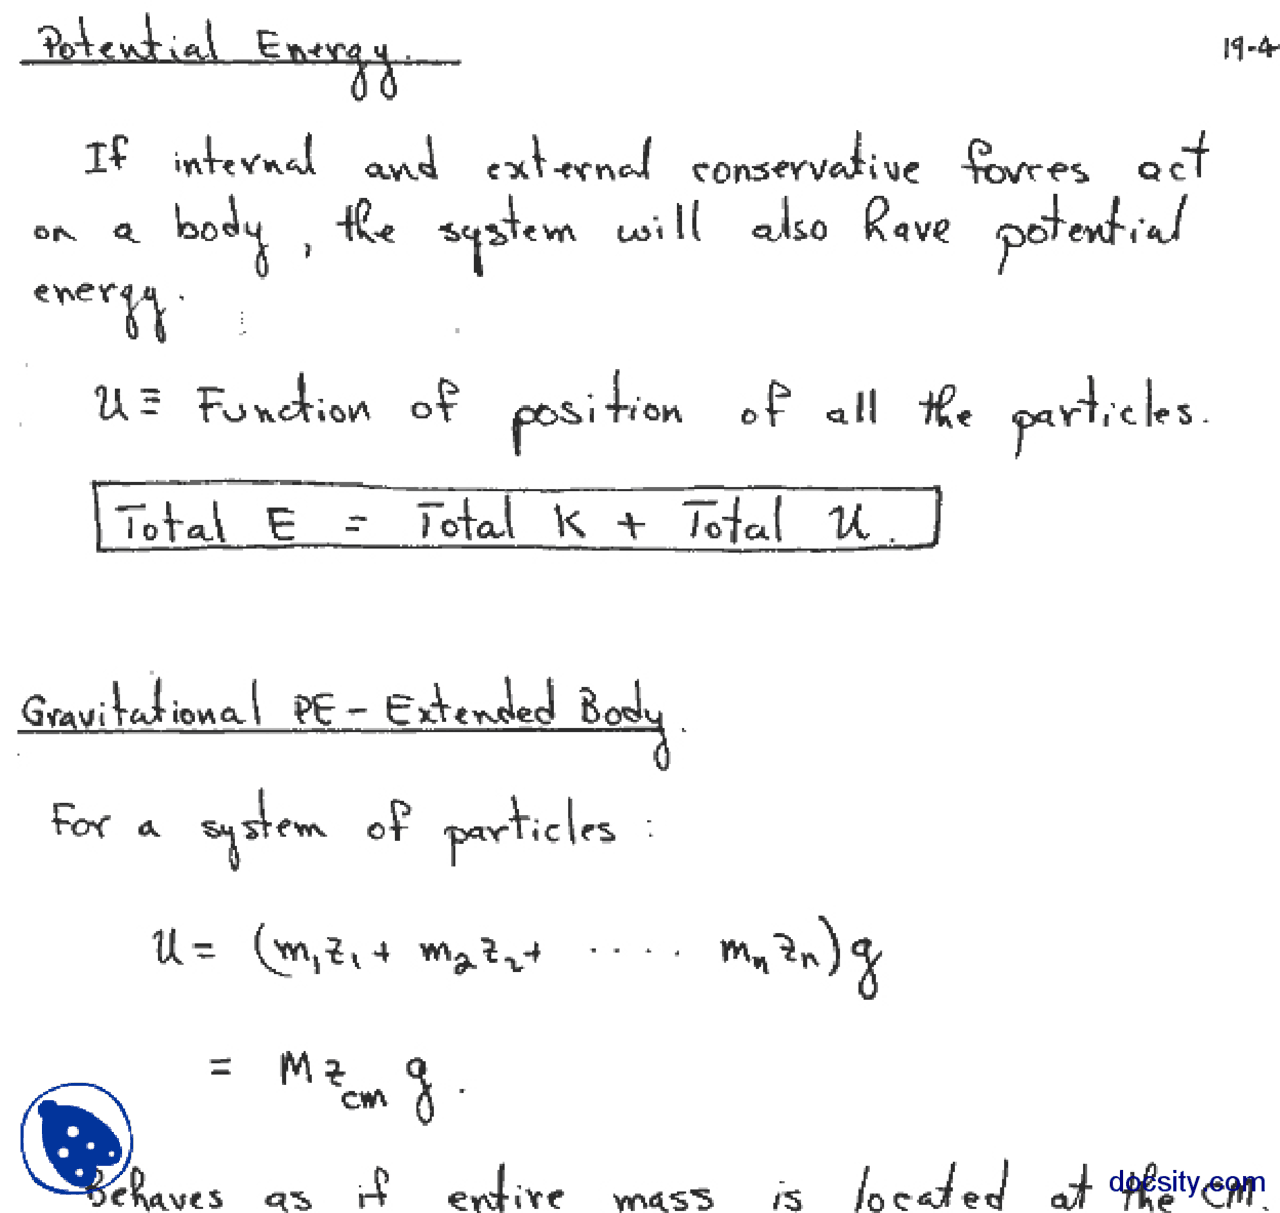 Potential Energy.
19-4
If internal and external conservative forces act
on a body, the system will also have potential
energy.
U ≡ Function of position of all the particles.
Total E = Total K + Total U.
Gravitational PE - Extended Body.
For a system of particles:
U = (m₁z₁ + m₂z₂ + ..... mₙzₙ)g
= M z_cm g.
Behaves as if entire mass is located at the cm.
docsity.com